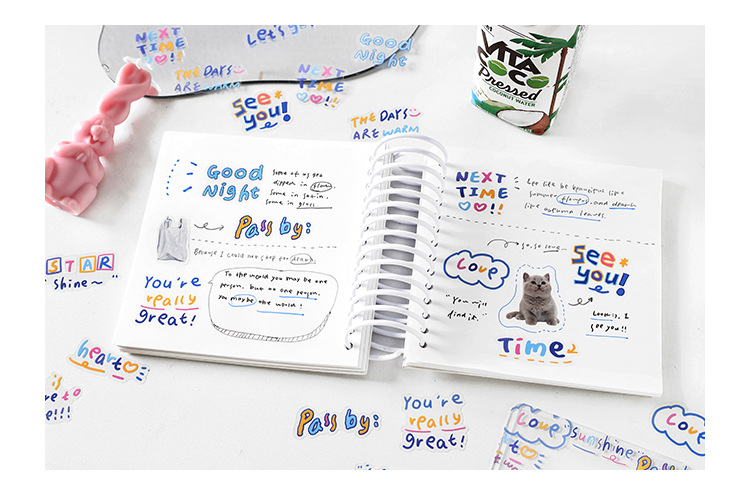 NEXT
TIME
!!
Let's
Good
Night
THE DAYS
ARE WARM
NEXT
TIME
!!
See
you!
THE DAYS
ARE WARM
VITA
COCO
Pressed
COCONUT WATER
Good
Night
Some of us get
dipped in flat,
Some in satin,
Some in gloss
Pass by:
Because I could not stop for death
You're
really
great!
To the world you may be one
person, but to one person,
you maybe the world!
NEXT
TIME
!!
Let life be beautiful like
summer flowers, and death
like autumn leaves.
so, so love
See
you!
Love
"You
find it."
Look is, I
see you!!
TIME
STAR
"Shine~"
heart
is
re to
e!!!
Pass by:
You're
really
great!
Love
"sunshine"
Love